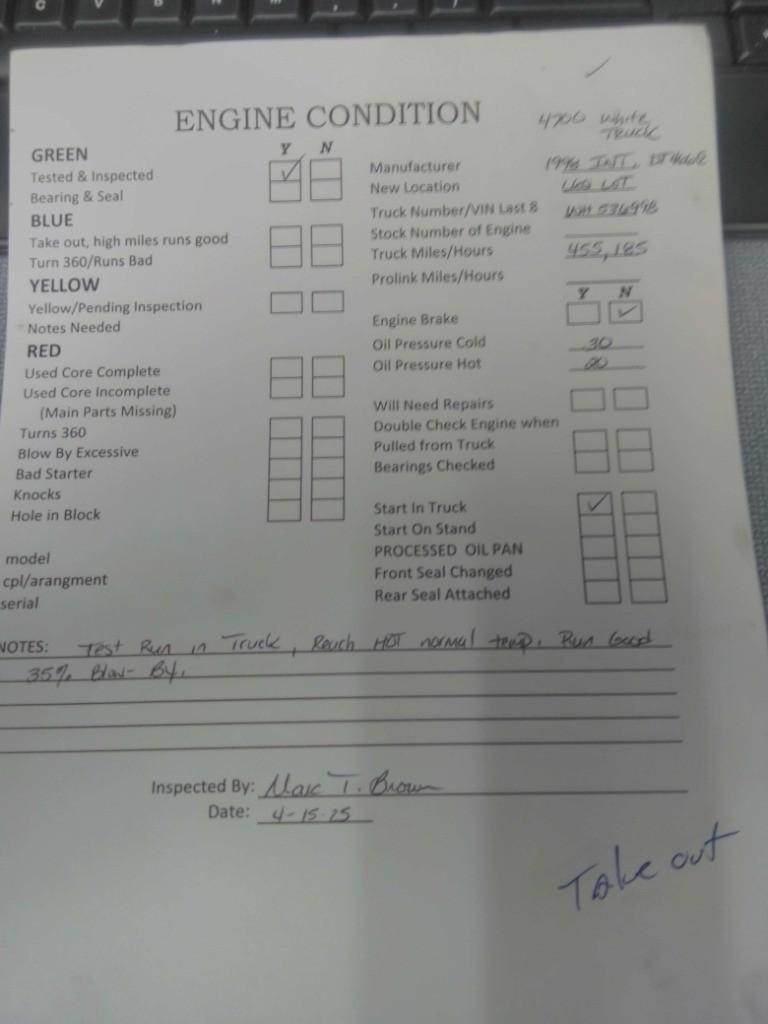 ENGINE CONDITION
4700 White
Truck
Y N
GREEN
Tested & Inspected
Bearing & Seal
BLUE
Take out, high miles runs good
Turn 360/Runs Bad
YELLOW
Yellow/Pending Inspection
Notes Needed
RED
Used Core Complete
Used Core Incomplete
(Main Parts Missing)
Turns 360
Blow By Excessive
Bad Starter
Knocks
Hole in Block
model
cpl/arangment
serial
Manufacturer 1996 INT.
New Location LOT
Truck Number/VIN Last 8
Stock Number of Engine
Truck Miles/Hours 455,185
Prolink Miles/Hours
Y N
Engine Brake
Oil Pressure Cold 30
Oil Pressure Hot 20
Will Need Repairs
Double Check Engine when
Pulled from Truck
Bearings Checked
Start In Truck
Start On Stand
PROCESSED OIL PAN
Front Seal Changed
Rear Seal Attached
NOTES: Test Run in Truck, Reach HOT normal temp. Run Good
35% Blow-By.
Inspected By: Marc T. Brown
Date: 4-15-25
Take out